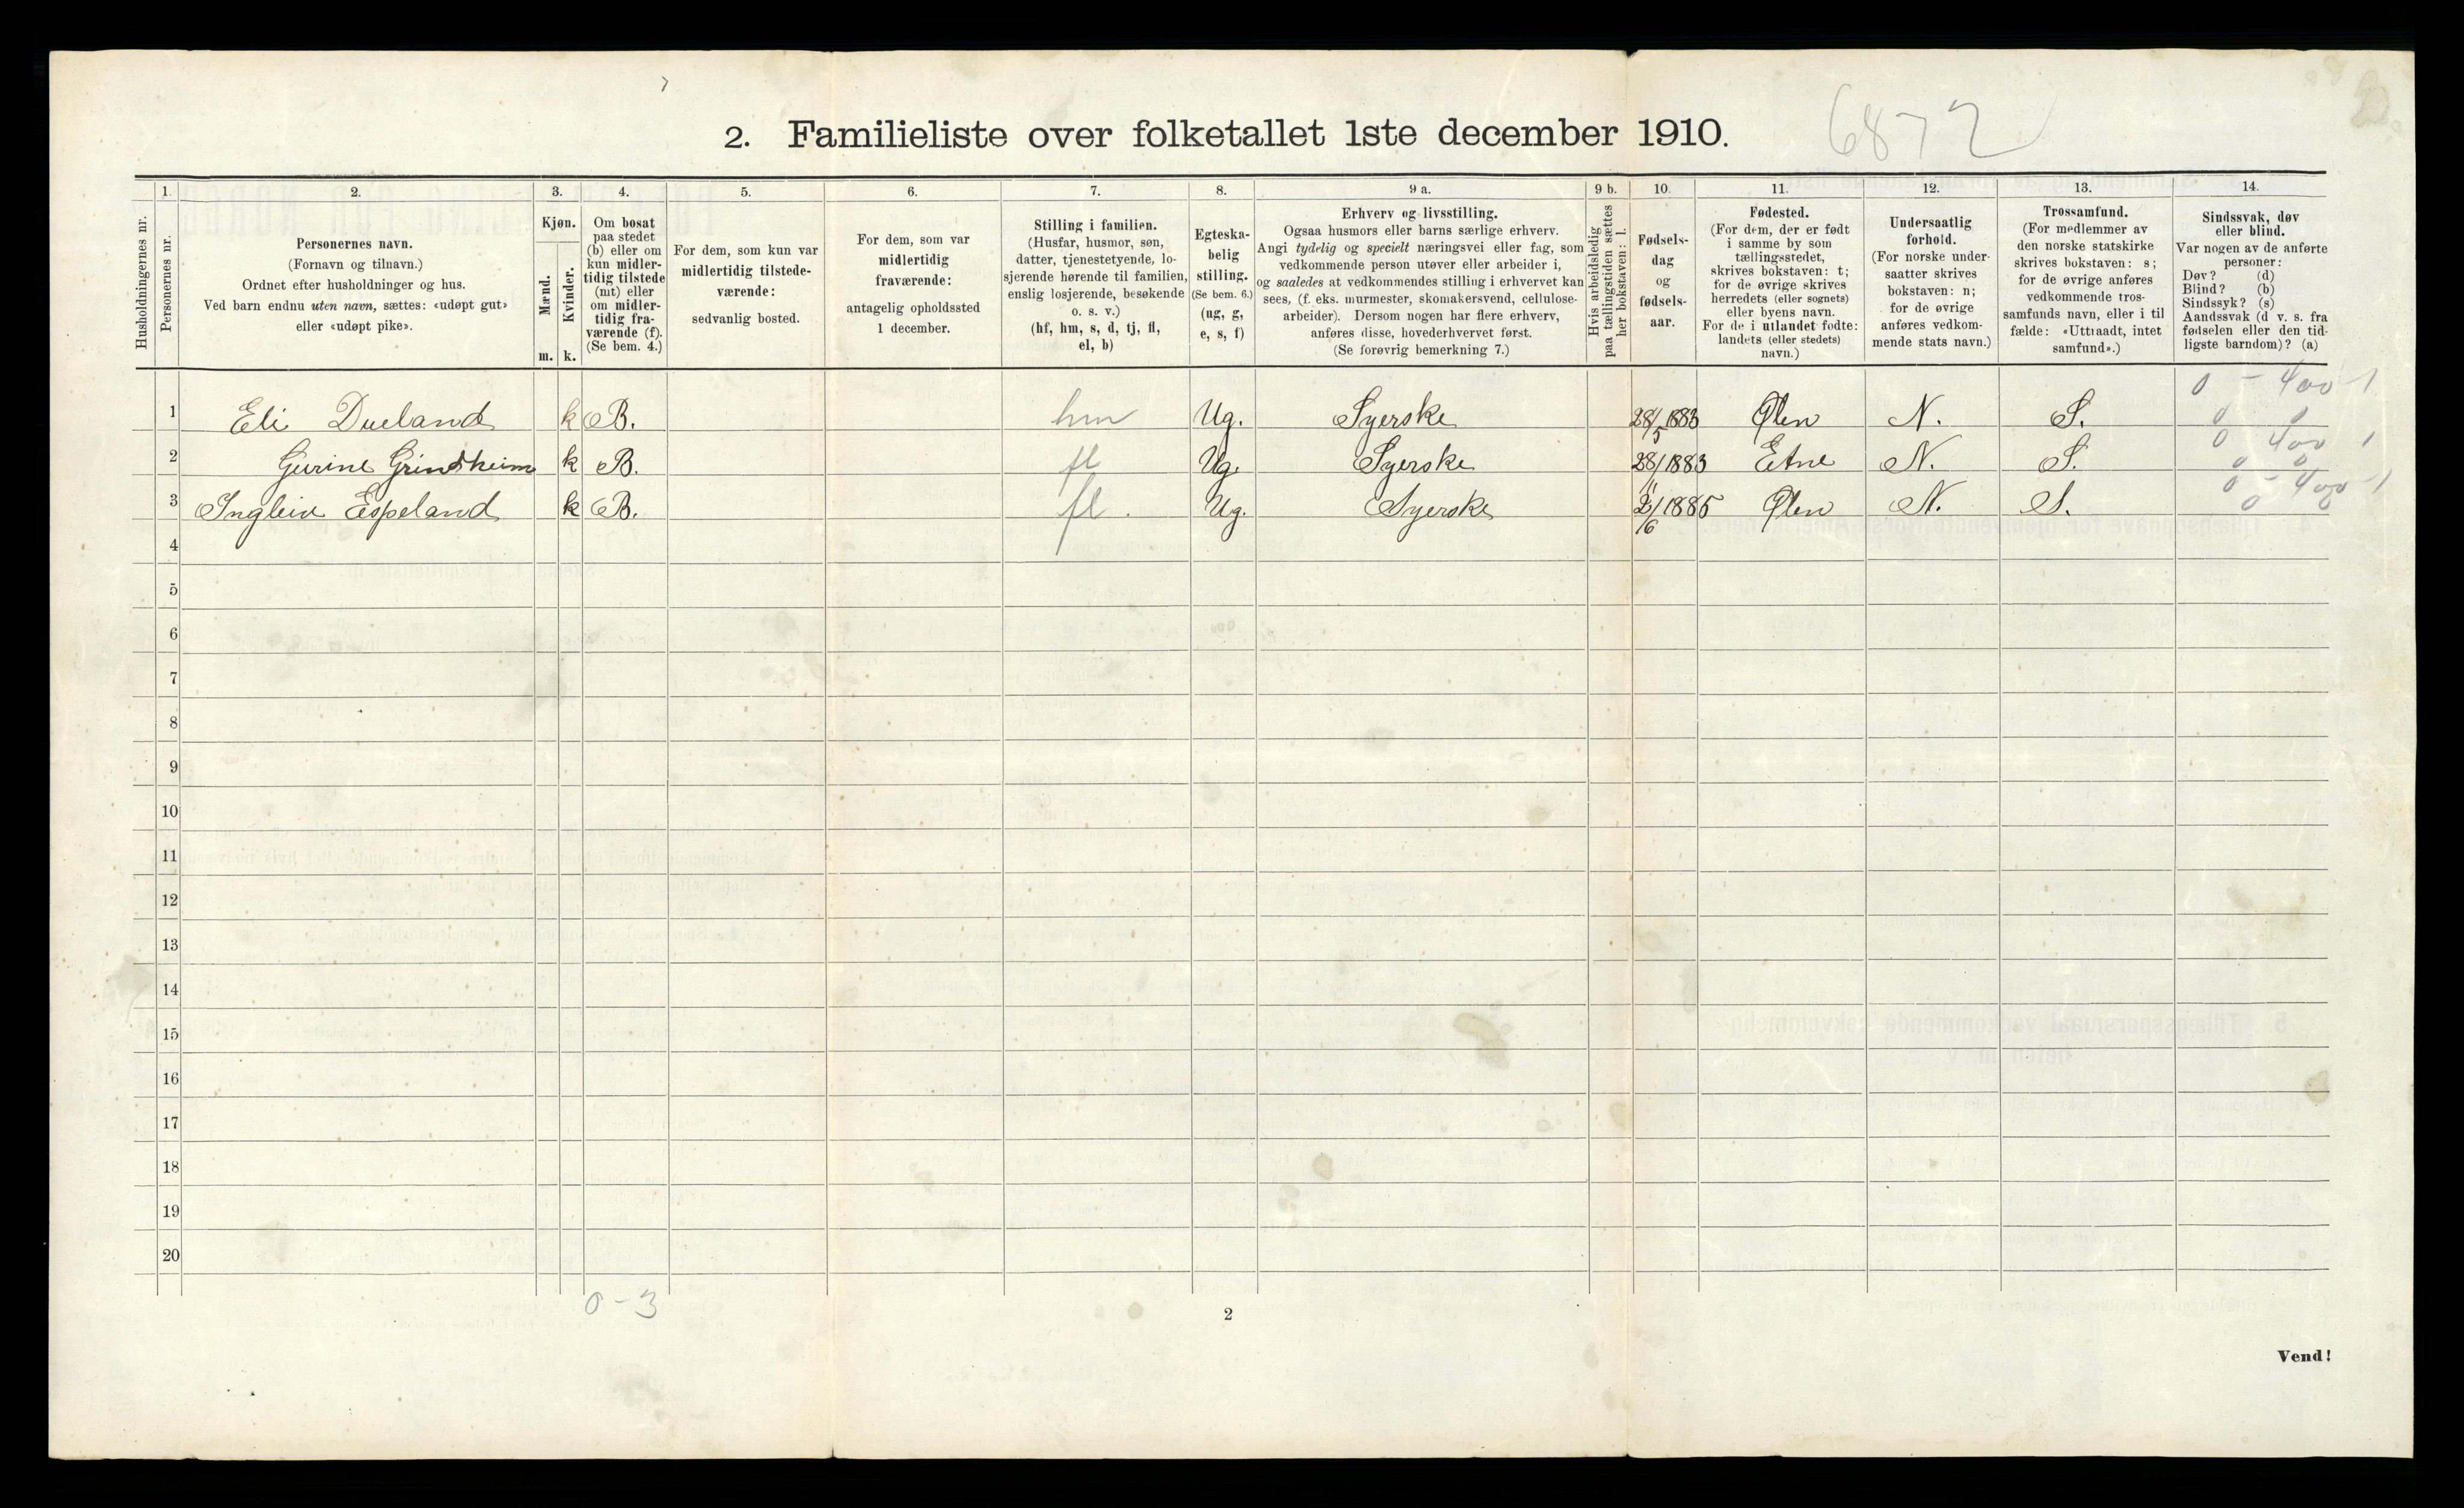 6872
2. Familieliste over folketallet 1ste december 1910.
1. 2. 3. 4. 5. 6. 7. 8. 9 a. 9 b. 10. 11. 12. 13. 14.
Husholdningernes nr.
Personernes nr.
Personernes navn.
(Fornavn og tilnavn.)
Ordnet efter husholdninger og hus.
Ved barn endnu uten navn, sættes: «udøpt gut»
eller «udøpt pike».
Kjøn.
Mænd.
m.
Kvinder.
k.
Om bosat
paa stedet
(b) eller om
kun midler-
tidig tilstede
(mt) eller
om midler-
tidig fra-
værende (f).
(Se bem. 4.)
For dem, som kun var
midlertidig tilstede-
værende:
sedvanlig bosted.
For dem, som var
midlertidig
fraværende:
antagelig opholdssted
1 december.
Stilling i familien.
(Husfar, husmor, søn,
datter, tjenestetyende, lo-
sjerende hørende til familien,
enslig losjerende, besøkende
o. s. v.)
(hf, hm, s, d, tj, fl,
el, b)
Egteska-
belig
stilling.
(Se bem. 6.)
(ug, g,
e, s, f)
Erhverv og livsstilling.
Ogsaa husmors eller barns særlige erhverv.
Angi tydelig og specielt næringsvei eller fag, som
vedkommende person utøver eller arbeider i,
og saaledes at vedkommendes stilling i erhvervet kan
sees, (f. eks. murmester, skomakersvend, cellulose-
arbeider). Dersom nogen har flere erhverv,
anføres disse, hovederhvervet først.
(Se forøvrig bemerkning 7.)
Hvis arbeidsledig
paa tællingstiden sættes
her bokstaven: l.
Fødsels-
dag
og
fødsels-
aar.
Fødested.
(For dem, der er født
i samme by som
tællingsstedet,
skrives bokstaven: t;
for de øvrige skrives
herredets (eller sognets)
eller byens navn.
For de i utlandet fødte:
landets (eller stedets)
navn.)
Undersaatlig
forhold.
(For norske under-
saatter skrives
bokstaven: n;
for de øvrige
anføres vedkom-
mende stats navn.)
Trossamfund.
(For medlemmer av
den norske statskirke
skrives bokstaven: s;
for de øvrige anføres
vedkommende tros-
samfunds navn, eller i til
fælde: «Uttraadt, intet
samfund».)
Sindssvak, døv
eller blind.
Var nogen av de anførte
personer:
Døv? (d)
Blind? (b)
Sindssyk? (s)
Aandssvak (d v. s. fra
fødselen eller den tid-
ligste barndom)? (a)
0 - 400 1
1 Eli Dueland k B. hm Ug. Syerske 28/5 1883 Ølen N. S. 0 0
0 400 1
2 Gurine Grindheim k B. fl Ug. Syerske 28/11 1883 Etne N. S. 0 0
0 - 400 1
3 Ingleiv Espeland k B. fl. Ug. Syerske 2/6 1885 Ølen N. S. 0 0
4
5
6
7
8
9
10
11
12
13
14
15
16
17
18
19
20
0 - 3
2
Vend!